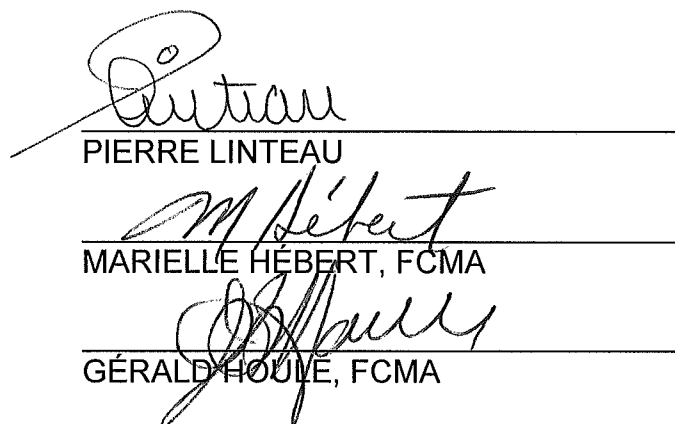 Linteau
PIERRE LINTEAU
M Hébert
MARIELLE HÉBERT, FCMA
Houle
GÉRALD HOULE, FCMA